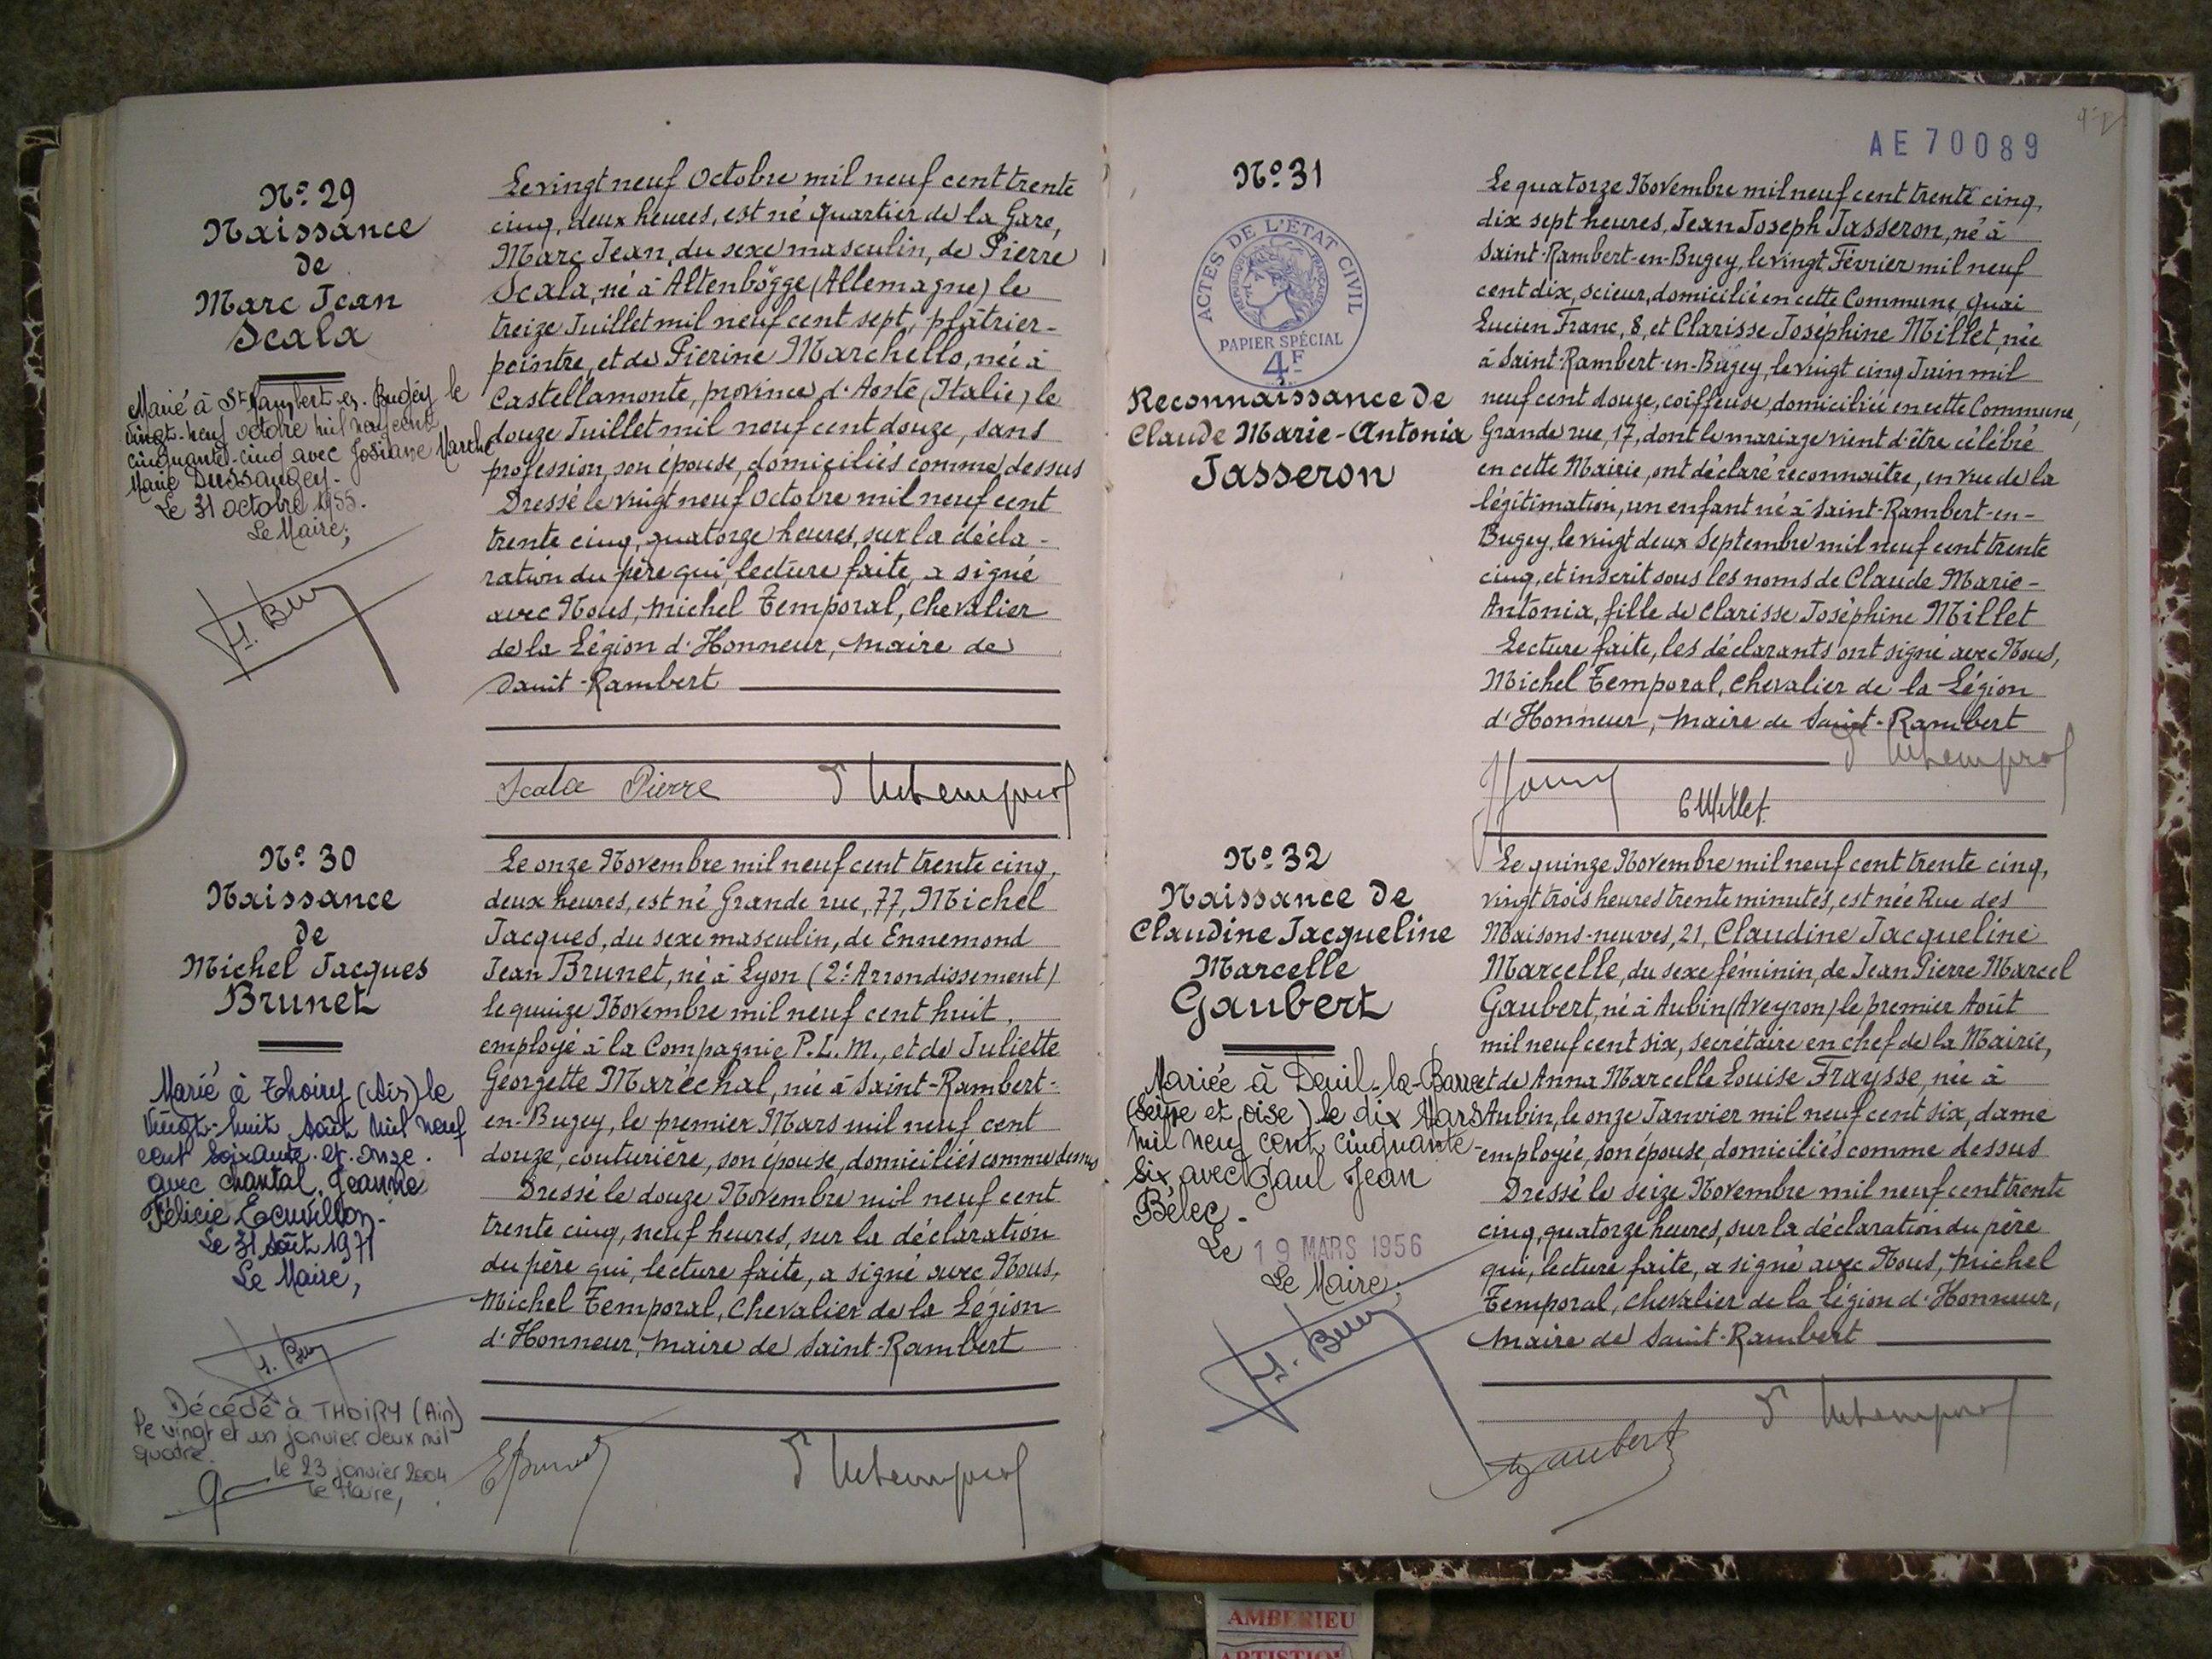 N° 29
Naissance
de
Marc Jean
Scala
Marié à St Rambert-en-Bugey le
vingt-neuf octobre mil neuf cent
cinquante-cinq avec Josiane
Marie Dussaugey.
Le 31 octobre 1955.
Le Maire,
Le vingt neuf Octobre mil neuf cent trente
cinq, deux heures, est né quartier de la Gare,
Marc Jean, du sexe masculin, de Pierre
Scala, né à Altenbögge (Allemagne) le
treize Juillet mil neuf cent sept, plâtrier-
peintre, et de Pierine Marchello, née à
Castellamonte, province d'Aoste (Italie) le
douze Juillet mil neuf cent douze, sans
profession, son épouse, domiciliés comme dessus
Dressé le vingt neuf Octobre mil neuf cent
trente cinq, quatorze heures, sur la décla-
ration du père qui, lecture faite, a signé
avec Nous, Michel Temporal, Chevalier
de la Légion d'Honneur, Maire de
Saint-Rambert
Scala Pierre
N° 30
Naissance
de
Michel Jacques
Brunet
Marié à Thoiry (Ain) le
vingt-huit Août mil neuf
cent soixante-et-onze.
avec Chantal, Jeanne
Félicie Ecuvillon-
Le 31 Août 1971
Le Maire,
Décédé à THOIRY (Ain)
le vingt et un janvier deux mil
quatre.
le 23 janvier 2004
le Maire,
Le onze Novembre mil neuf cent trente cinq,
deux heures, est né Grande rue, 77, Michel
Jacques, du sexe masculin, de Ennemond
Jean Brunet, né à Lyon (2e Arrondissement)
le quinze Novembre mil neuf cent huit,
employé à la Compagnie P.L.M., et de Juliette
Georgette Maréchal, née à Saint-Rambert-
en-Bugey, le premier Mars mil neuf cent
douze, couturière, son épouse, domiciliés comme dessus
Dressé le douze Novembre mil neuf cent
trente cinq, neuf heures, sur la déclaration
du père qui, lecture faite, a signé avec Nous,
Michel Temporal, Chevalier de la Légion
d'Honneur, Maire de Saint-Rambert
EBrunet
AE 70089
N° 31
ACTES DE L'ÉTAT CIVIL
RÉPUBLIQUE FRANÇAISE
PAPIER SPÉCIAL
4F
Reconnaissance de
Claude Marie-Antonia
Jasseron
Le quatorze Novembre mil neuf cent trente cinq,
dix sept heures, Jean Joseph Jasseron, né à
Saint-Rambert-en-Bugey, le vingt Février mil neuf
cent dix, scieur, domicilié en cette Commune, quai
Lucien Franc, 8, et Clarisse Joséphine Millet, née
à Saint-Rambert-en-Bugey, le vingt cinq Juin mil
neuf cent douze, coiffeuse, domiciliée en cette Commune,
Grande rue, 17, dont le mariage vient d'être célébré
en cette Mairie, ont déclaré reconnaître, en vue de la
légitimation, un enfant né à Saint-Rambert-en-
Bugey, le vingt deux Septembre mil neuf cent trente
cinq, et inscrit sous les noms de Claude Marie-
Antonia, fille de Clarisse Joséphine Millet
Lecture faite, les déclarants ont signé avec Nous,
Michel Temporal, Chevalier de la Légion
d'Honneur, Maire de Saint-Rambert
C Millet
N° 32
Naissance de
Claudine Jacqueline
Marcelle
Gaubert
Mariée à Deuil-la-Barre
(Seine et Oise) le dix Mars
mil neuf cent cinquante-
six avec Paul Jean
Bélec-
Le 19 MARS 1956
Le Maire,
Le quinze Novembre mil neuf cent trente cinq,
vingt trois heures trente minutes, est née Rue des
Maisons-neuves, 21, Claudine Jacqueline
Marcelle, du sexe féminin, de Jean Pierre Marcel
Gaubert, né à Aubin (Aveyron) le premier Août
mil neuf cent six, secrétaire en chef de la Mairie,
et de Anna Marcelle Louise Fraysse, née à
Aubin, le onze Janvier mil neuf cent six, dame
employée, son épouse, domiciliés comme dessus
Dressé le seize Novembre mil neuf cent trente
cinq, quatorze heures, sur la déclaration du père
qui, lecture faite, a signé avec Nous, Michel
Temporal, Chevalier de la Légion d'Honneur,
Maire de Saint-Rambert
Gaubert
AMBERIEU